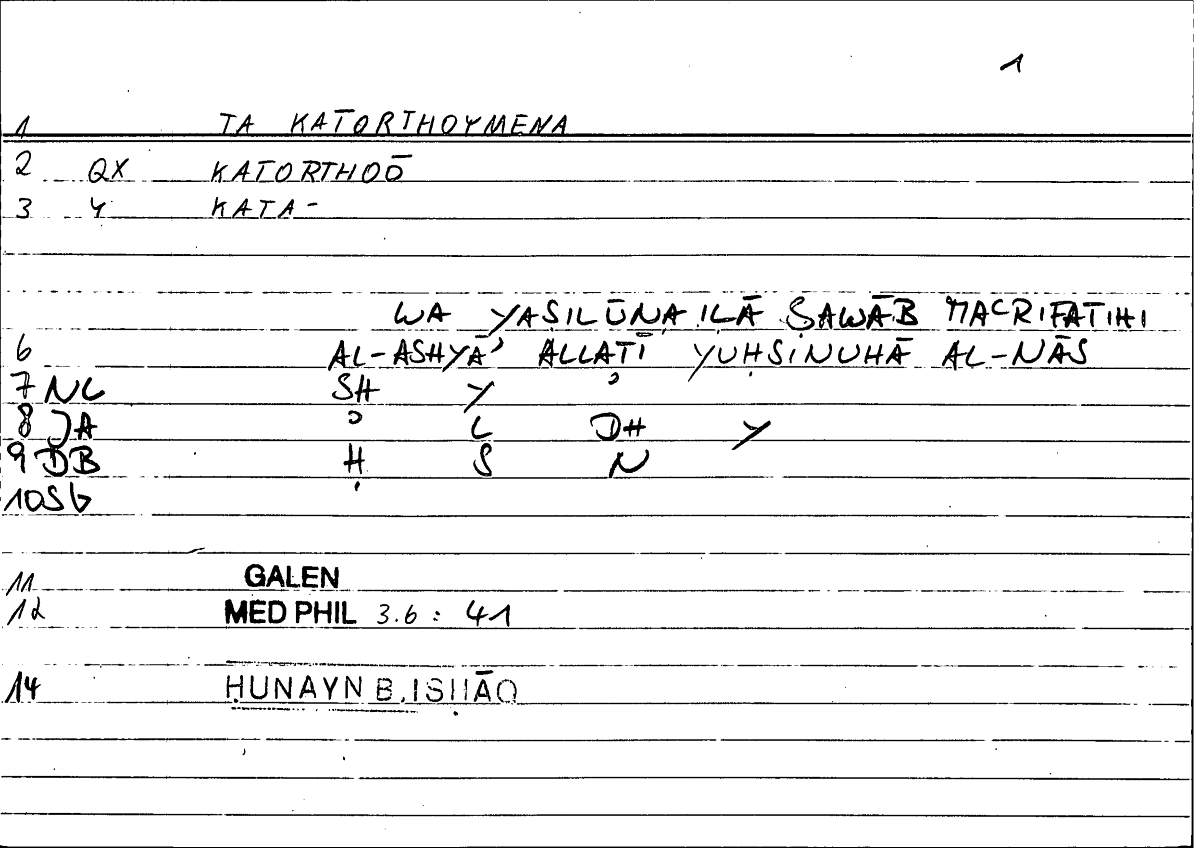 1
1 TA KATORTHOYMENA
2 QX KATORTHOŌ
3 Y KATA-
WA YAṢILŪNA ILĀ ṢAWĀB MACRIFATIHI
6 AL-ASHYĀʾ ALLATĪ YUḤSINUHĀ AL-NĀS
7 NL SH Y ʾ
8 JA ʾ L DH Y
9 DB Ḥ S N
10 SG
11 GALEN
12 MED PHIL 3.6 : 41
14 ḤUNAYN B. ISḤĀQ